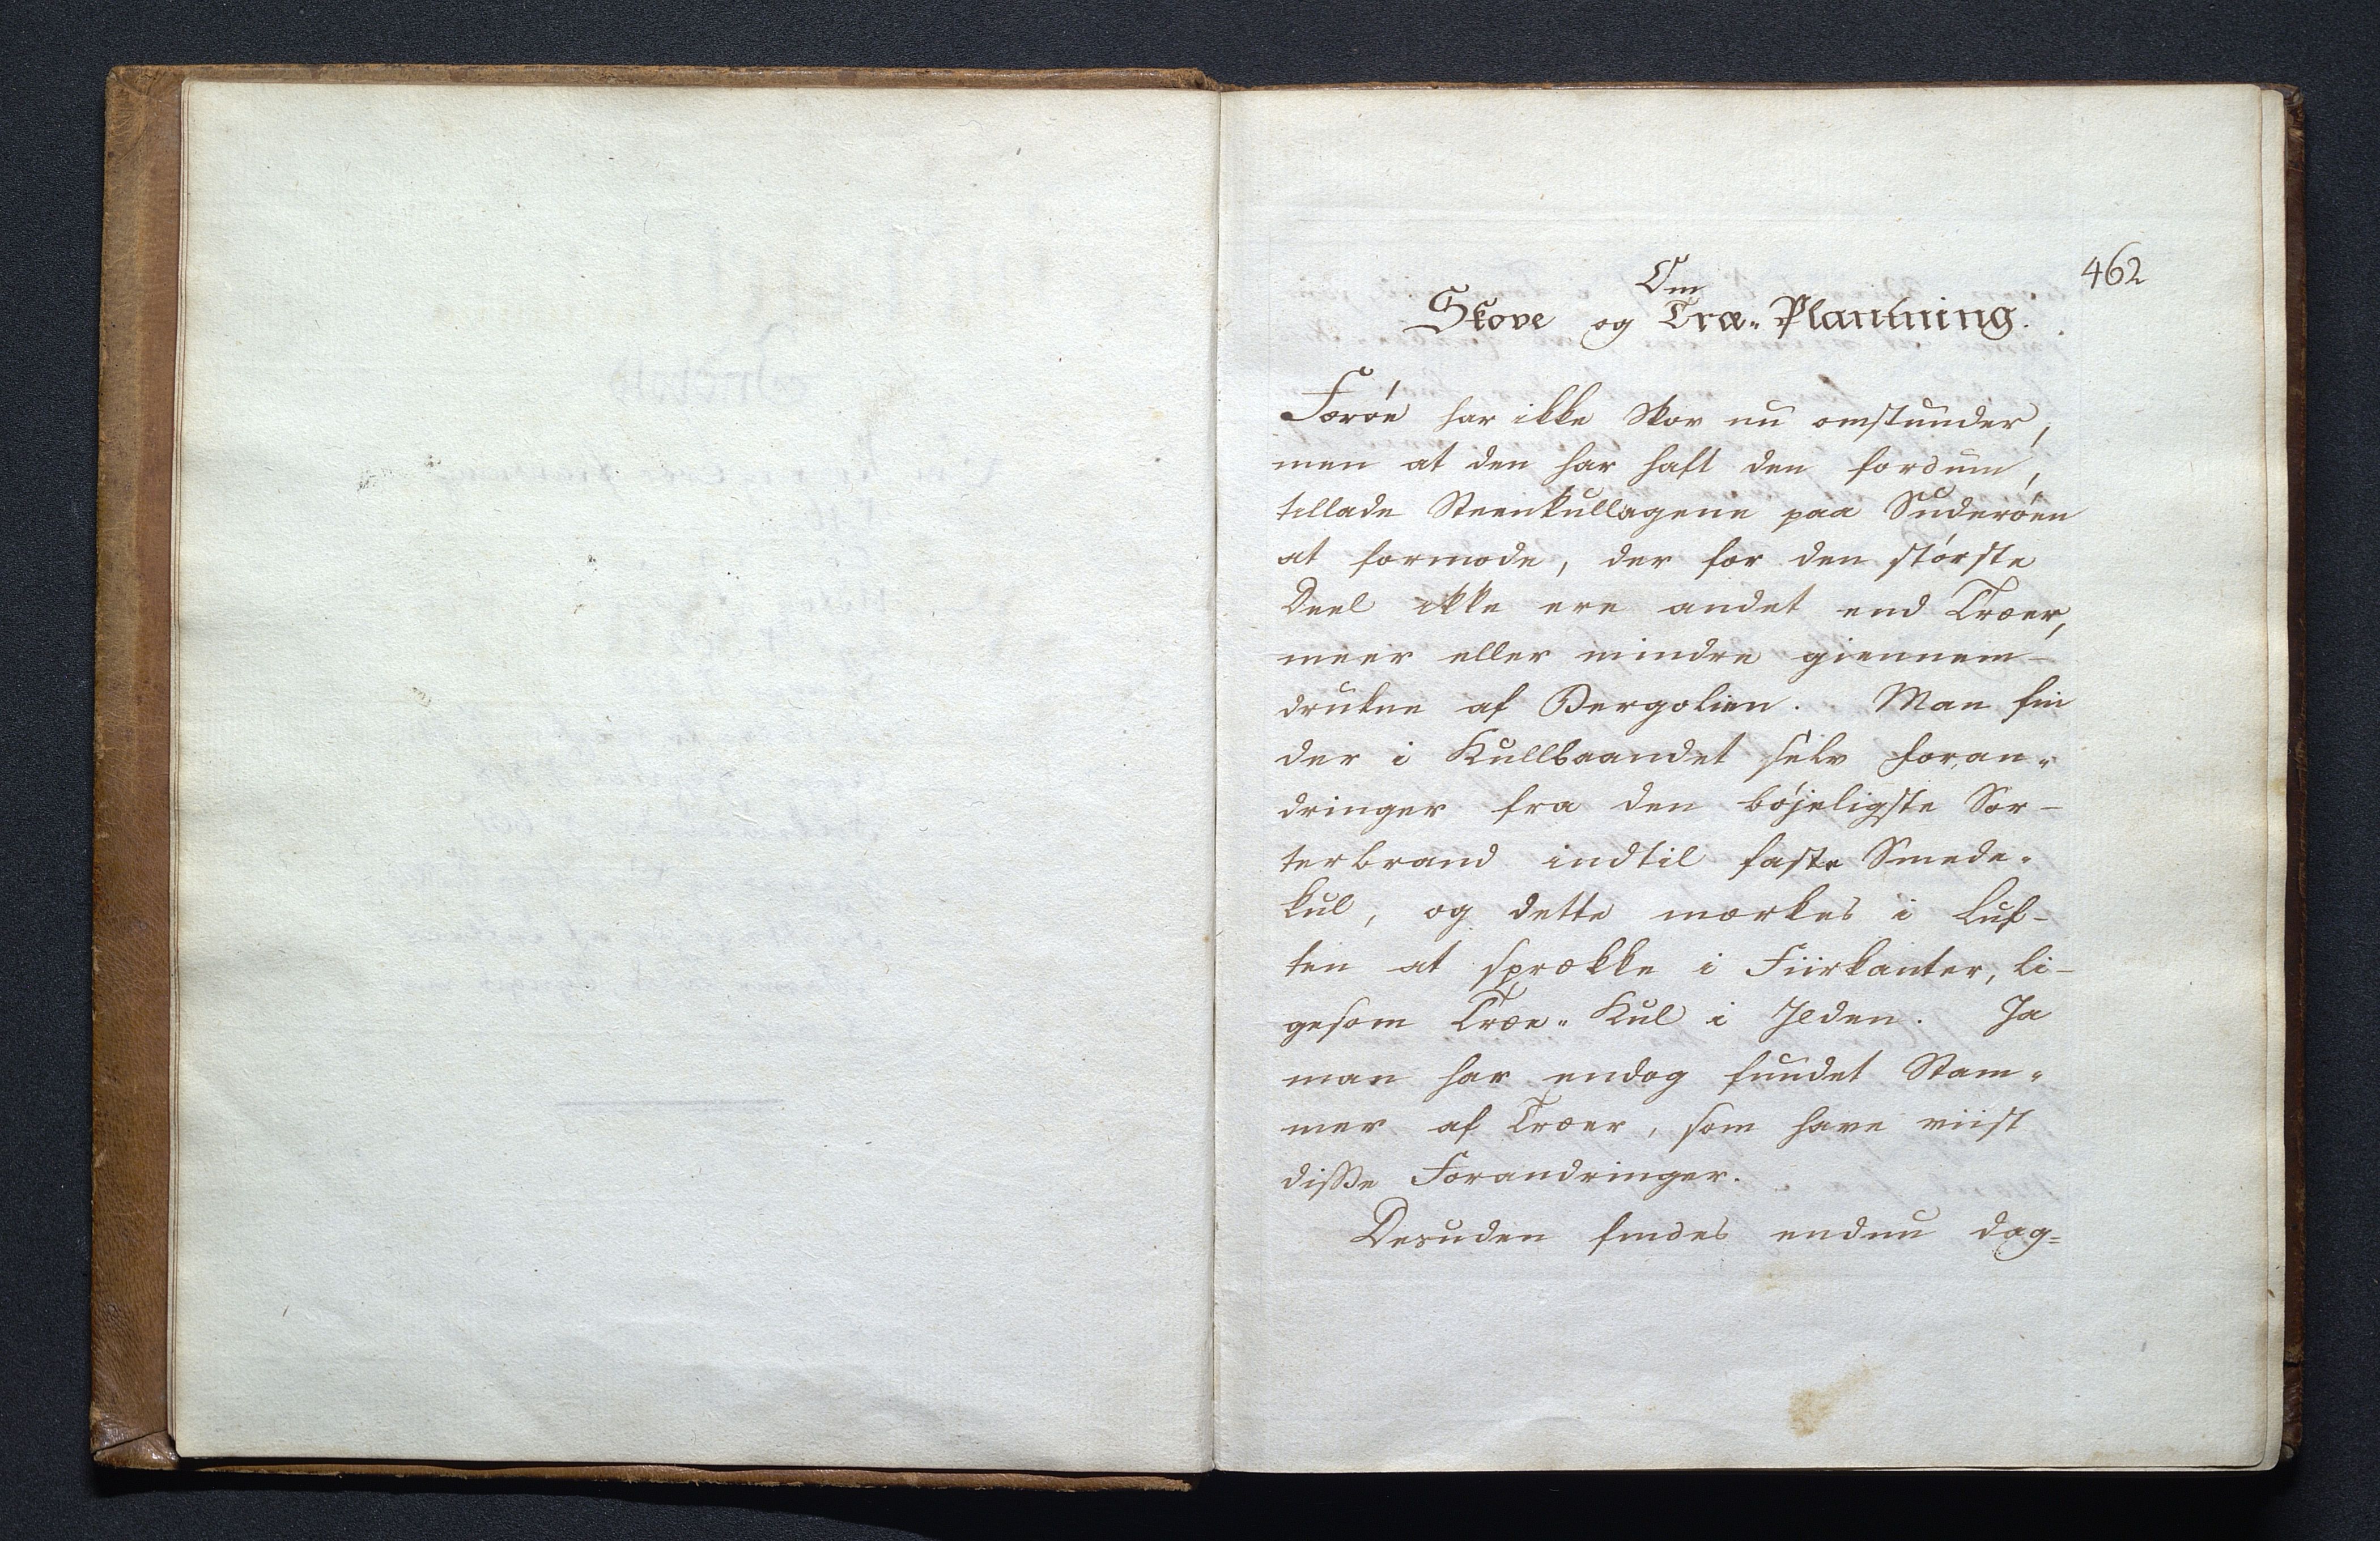 462
Om
Skove og Træ-Plantning.
Færöe har ikke Skov nu omstunder,
men at den har haft den fordum,
tillade Steenkullagene paa Suderöen
at formode, der for den störste
Deel ikke ere andet end Træer,
meer eller mindre giennem-
drukne af Bergolien. Man fin
der i Kullbaandet selv foran-
dringer fra den böjeligste Sor-
terbrand indtil faste Smede-
kul, og dette mærkes i Luf-
ten at sprække i Fiirkanter, li-
gesom Træe-Kul i Ilden. Ja
man har endog fundet Stam-
mer af Træer, som have viist
disse Forandringer.
Desuden findes endnu dag-